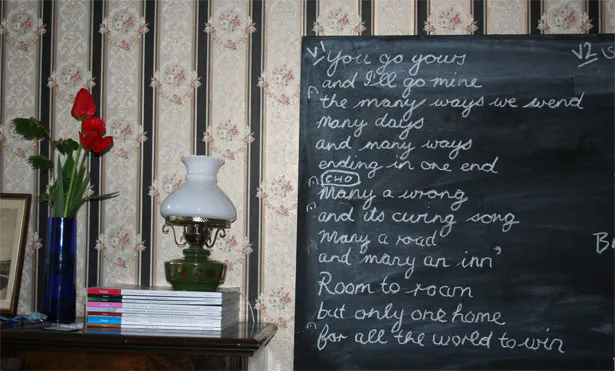 V1 You go yours
and I'll go mine
the many ways we wend
Many days
and many ways
ending in one end
CHO
Many a wrong
and its curing song
Many a road
and many an inn
Room to roam
but only one home
for all the world to win
V2